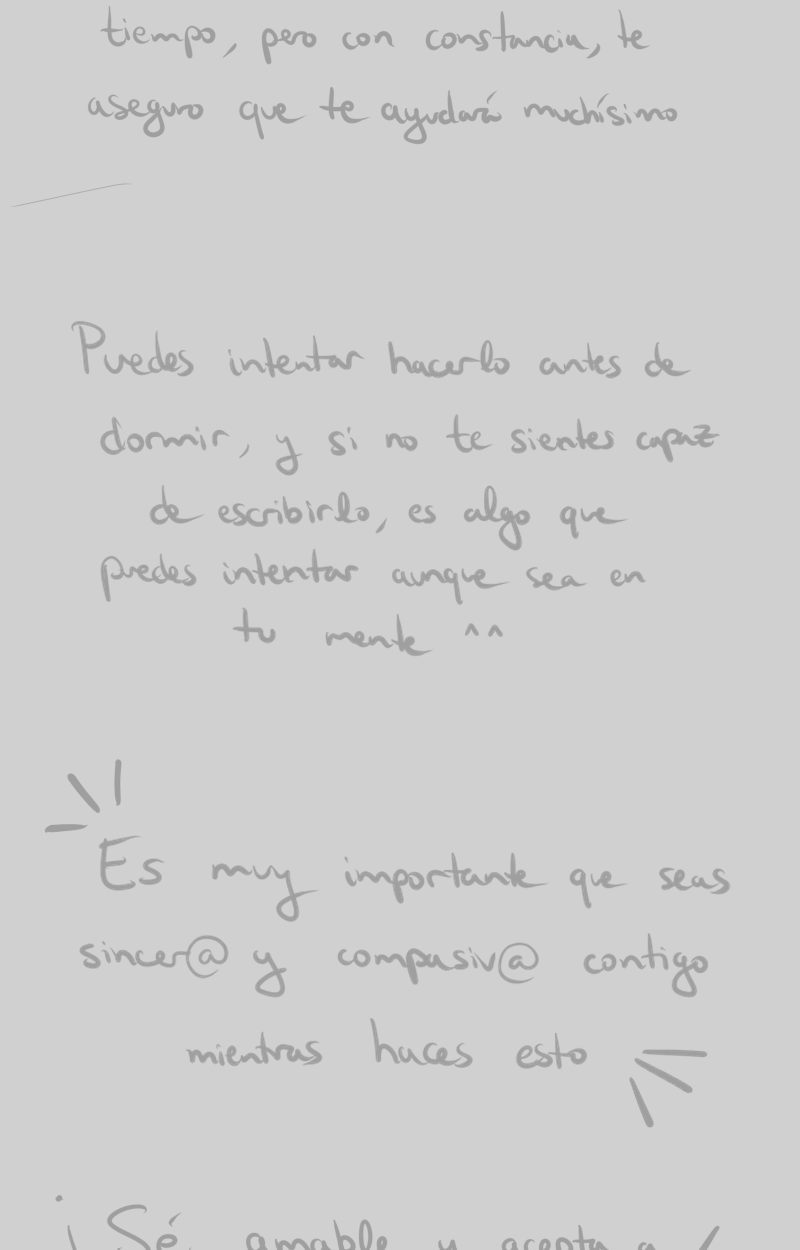 tiempo, pero con constancia, te
aseguro que te ayudará muchísimo
Puedes intentar hacerlo antes de
dormir, y si no te sientes capaz
de escribirlo, es algo que
puedes intentar aunque sea en
tu mente ^^
Es muy importante que seas
sincer@ y compasiv@ contigo
mientras haces esto
¡Sé amable y acepta a